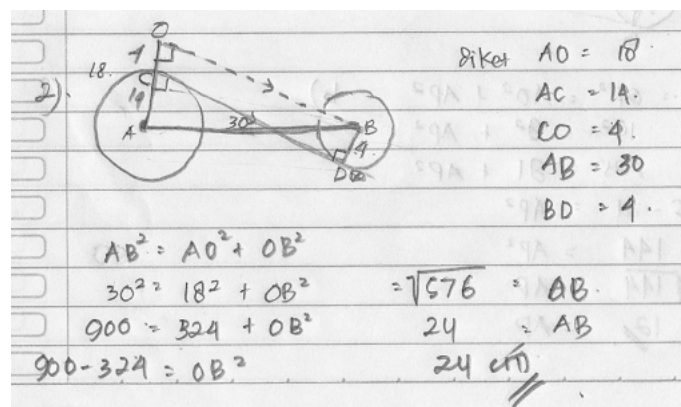 2).
O
4
18.
C
14
A
30
B
4.
D
diket AO = 18
AC = 14.
CO = 4.
AB = 30
BD = 4.
AB² = AO² + OB²
30² = 18² + OB²
900 = 324 + OB²
900-324 = OB²
=√576 = OB.
24 = AB
24 cm